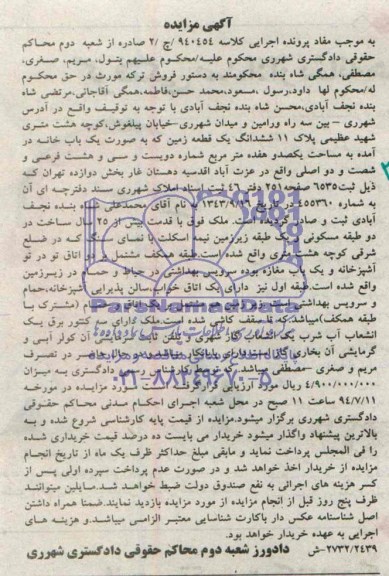 آگهی مزایده
به موجب مفاد پرونده اجرایی کلاسه ۹۴۰۴۵۴ /ج /۲ صادره از شعبه دوم محاکم
حقوقی دادگستری شهرری محکوم علیه/محکوم علیهم بتول، مریم، صغری،
مصطفی، همگی شاه بنده محکومند به دستور فروش ترکه مورث در حق محکوم
له/محکوم لها داود، رسول ،مسعود،محمد حسن،فاطمه،همگی آقاجانی،مرتضی شاه
بنده نجف آبادی،محسن شاه بنده نجف آبادی با توجه به توقیف واقع در آدرس
شهرری – بین سه راه ورامین و میدان شهرری -خیابان پیلغوش،کوچه هشت متری
شهید عظیمی پلاک ۱۱ ششدانگ یک قطعه زمین که به صورت یک باب خانه در
آمده به مساحت یکصدو هفده متر مربع شماره دویست و سی و هشت فرعی و
شصت و دو اصلی واقع در عزت آباد اقدسیه دهستان غار بخش دوازده تهران که
ذیل ثبت۶۵۳۵ صفحه۲۵۱ دفتر ۴۶ ثبت اسناد املاک شهرری سند دفترچه ای آن
به شماره ۴۵۵۳۶۰ در تاریخ ۱۳۴۳/۹/۲۶ به نام آقای محمدعلی شاه بنده نجف
آبادی ثبت و صادر گردیده است. ملک فوق با قدمت بیش از ۲۵ سال ساخت در
دو طبقه مسکونی و یک طبقه زیرزمین نیمه اسکلت با نمای سنگ که در ضلع
شرقی کوچه هشت متری واقع شده است.طبقه همکف مشتمل بر دو اتاق تو در تو
آشپزخانه و یک باب مغازه بوده سرویس بهداشتی در حیاط و حمام در زیرزمین
واقع شده است.طبقه اول نیز دارای یک اتاق خواب،سالن پذیرایی، آشپزخانه،حمام
و سرویس بهداشتی است. زیرزمین هم مشتمل بر یک اتاق و حمام (مشترک با
طبقه همکف)میباشد.که تا سقف کاشی شده است.ملک دارای سه کنتور برق یک
انشعاب آب شرب یک انشعاب گاز شهری و تلفن ثابت
گرمایشی آن بخاری گاز است.دارای پایانکار میباشد.و در حال حاضر در تصرف
مریم و صغری –مصطفی میباشد.که توسط کارشناس رسمی دادگستری به میزان
۴/۹۰۰/۰۰۰/۰۰۰ ریال مورد ارزیابی قرار گرفته است. مورد مزایده در مورخه
۹۴/۷/۱۱ ساعت ۱۱ صبح در محل شعبه اجرای احکام مدنی محاکم حقوقی
دادگستری شهرری برگزار میشود.مزایده از قیمت پایه کارشناسی شروع شده و به
بالاترین پیشنهاد واگذار میشود خریدار می بایست ده درصد قیمت خریداری شده
را فی المجلس پرداخت نماید و مابقی مبلغ حداکثر ظرف یک ماه از تاریخ انجام
مزایده از خریدار اخذ خواهد شد و در صورت عدم پرداخت سپرده اولی پس از
کسر هزینه های اجرائی به نفع صندوق دولت ضبط خواهد شد.مایلین میتوانند
ظرف پنج روز قبل از انجام مزایده از مورد مزایده بازدید نمایند.ضمنا همراه داشتن
اصل شناسنامه عکس دار یاکارت شناسایی معتبر الزامی میباشد.و هزینه های
اجرایی به عهده خریدار خواهد بود.
۲۷۳۲/۲۴۳۹-ش دادورز شعبه دوم محاکم حقوقی دادگستری شهرری
ParsNamadData
۰۲۱-۸۸۳۴۹۶۷۰-۵